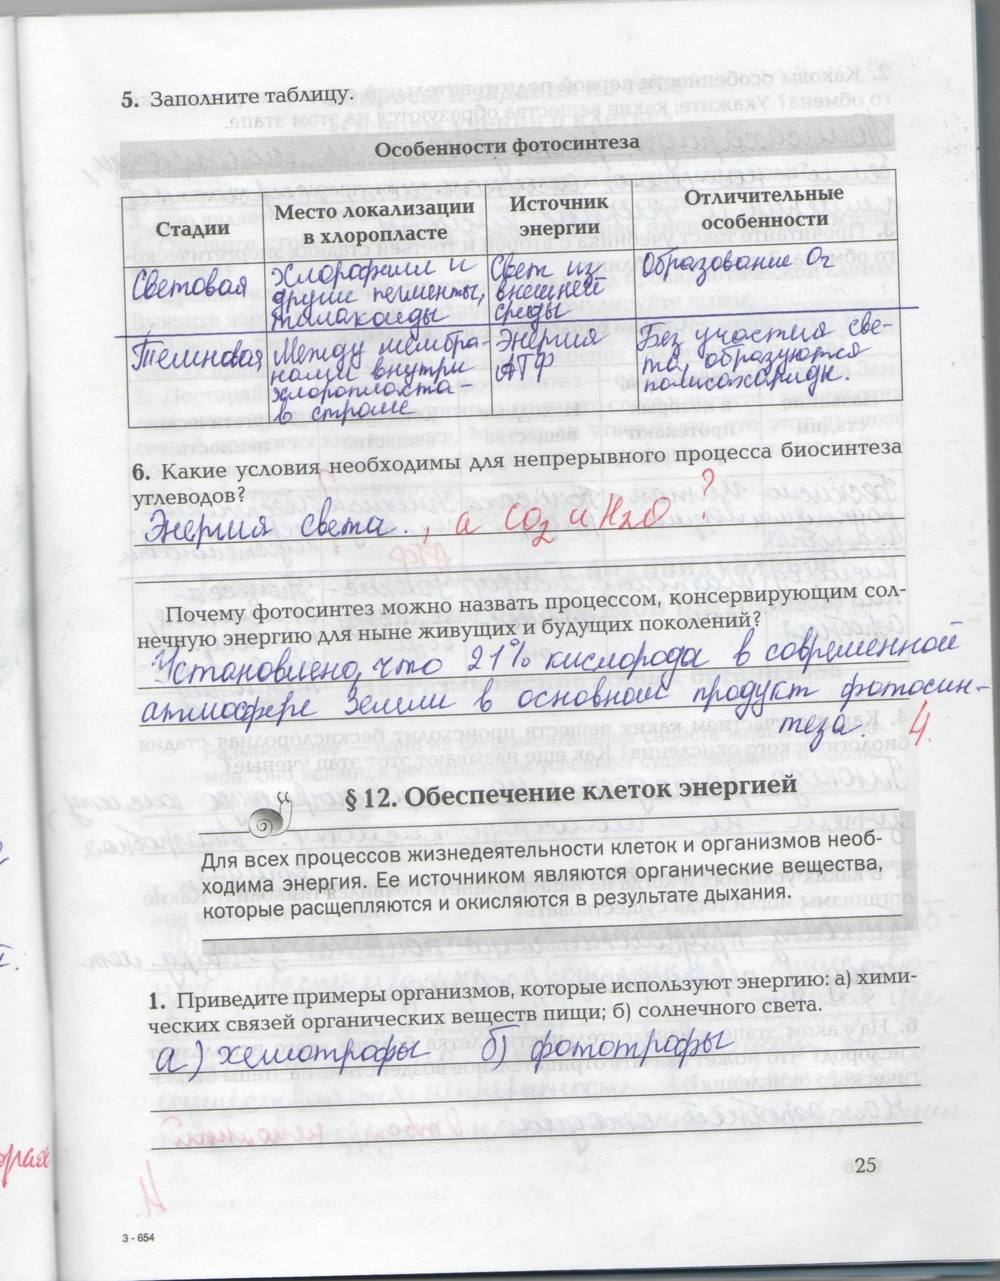 5. Заполните таблицу.
Особенности фотосинтеза
Стадии
Место локализации
в хлоропласте
Источник
энергии
Отличительные
особенности
Световая
Хлорофилл и
другие пегменты,
тилакоиды
Свет из
внешней
среды
Образование O2
Темновая
Между мембра-
нами внутри
хлоропласта -
в строме
Энергия
АТФ
Без участия све-
та, образуются
полисахариды.
6. Какие условия необходимы для непрерывного процесса биосинтеза
углеводов?
Энергия света., а CO2 и H2O ?
Почему фотосинтез можно назвать процессом, консервирующим сол-
нечную энергию для ныне живущих и будущих поколений?
Установлено, что 21% кислорода в современной
атмосфере Земли в основном продукт фотосин-
теза. 4.
§ 12. Обеспечение клеток энергией
Для всех процессов жизнедеятельности клеток и организмов необ-
ходима энергия. Ее источником являются органические вещества,
которые расщепляются и окисляются в результате дыхания.
1. Приведите примеры организмов, которые используют энергию: а) хими-
ческих связей органических веществ пищи; б) солнечного света.
а) хемотрофы б) фототрофы
25
3 - 654